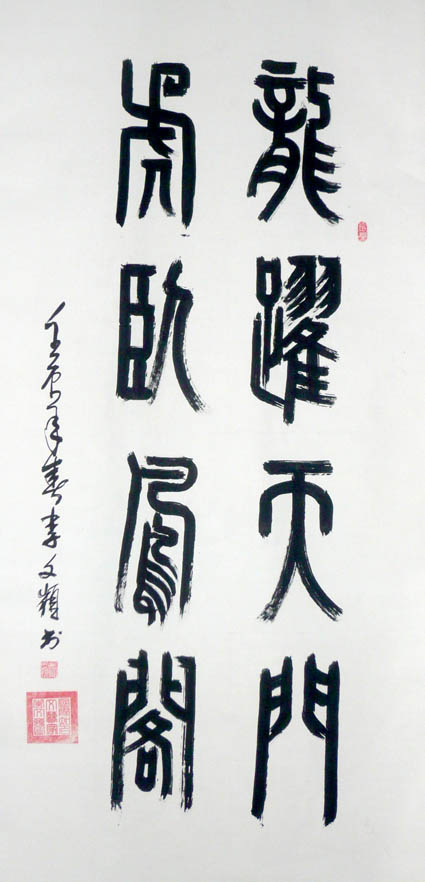 龍躍天門
虎臥鳳閣
年春李文书